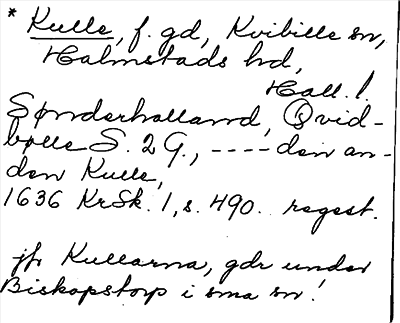 * Kulle, f. gd, Kvibille sn,
Halmstads hd,
Hall.!
Sønderhalland, Qvid-
bølle S. 2 G., ---- den an-
den Kulle,
1636 KrSk. 1, s. 490. regest.
jfr Kullarna, gdr under
Biskopstorp i sma sn!